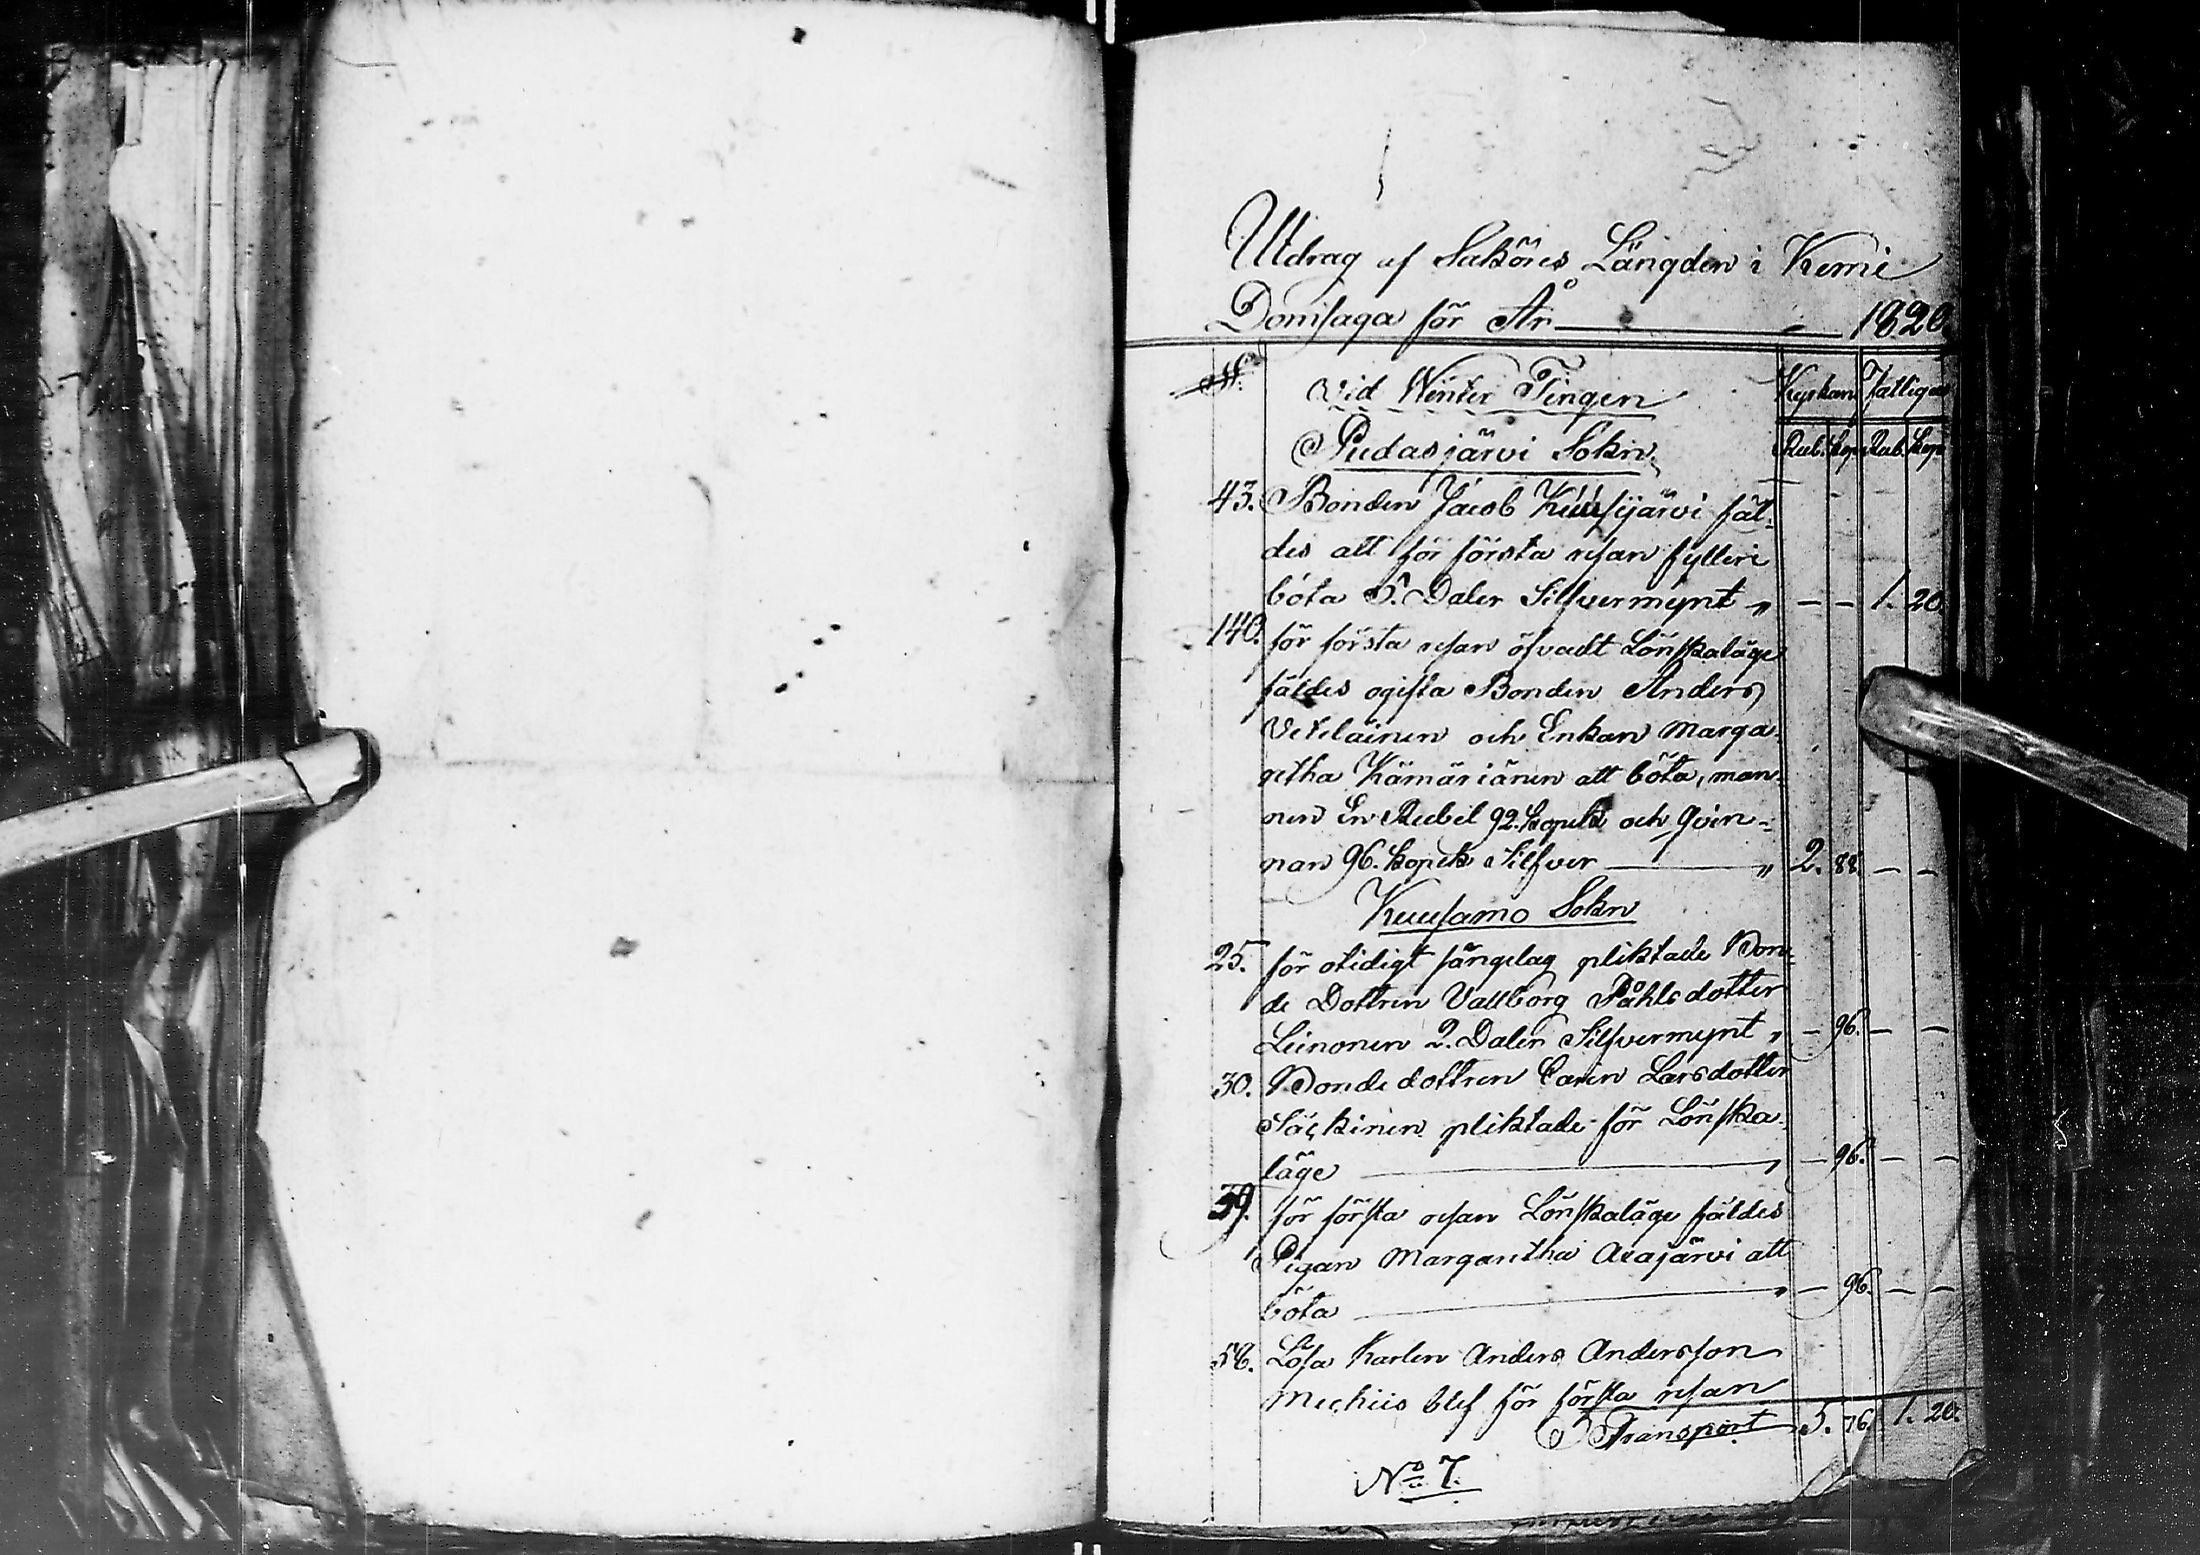 Utdrag af Saköres Längden i Kemi
Domsaga för År 1820.
N:o Vid Winter Tingen Kyrkan Fattiga
Pudasjärvi Sokn Rub. Kop. Rub. Kop.
43. Bonden Jacob Kuusijärvi fäl-
des att för första resan fylleri
böta 5. Daler Silfvermynt „ — — 1. 20.
140. för första resan öfvadt Lönskaläge
fäldes ogifta Bonden Anders
Veteläinen och Enkan Marga-
retha Kämäräinen att böta, man-
nen En Rubel 92. kopek och Qvin-
nan 96. kopek Silfver „ 2. 88. — —
Kuusamo Sokn
25. för otidigt sängelag pliktade Bon-
de Dottren Vallborg Påhlsdotter
Leinonen 2. Daler Silfvermynt „ — 96. — —
30. Bondedottren Carin Larsdotter
Säckinen pliktade för Lönska-
läge „ — 96. — —
39. för första resan Lönskaläge fäldes
Pigan Margaretha Aiajärvi att
böta „ — 96. — —
58. Lösa Karlen Anders Andersson
Meckiis blef för första resan
Transport 5. 76. 1. 20.
No 7.